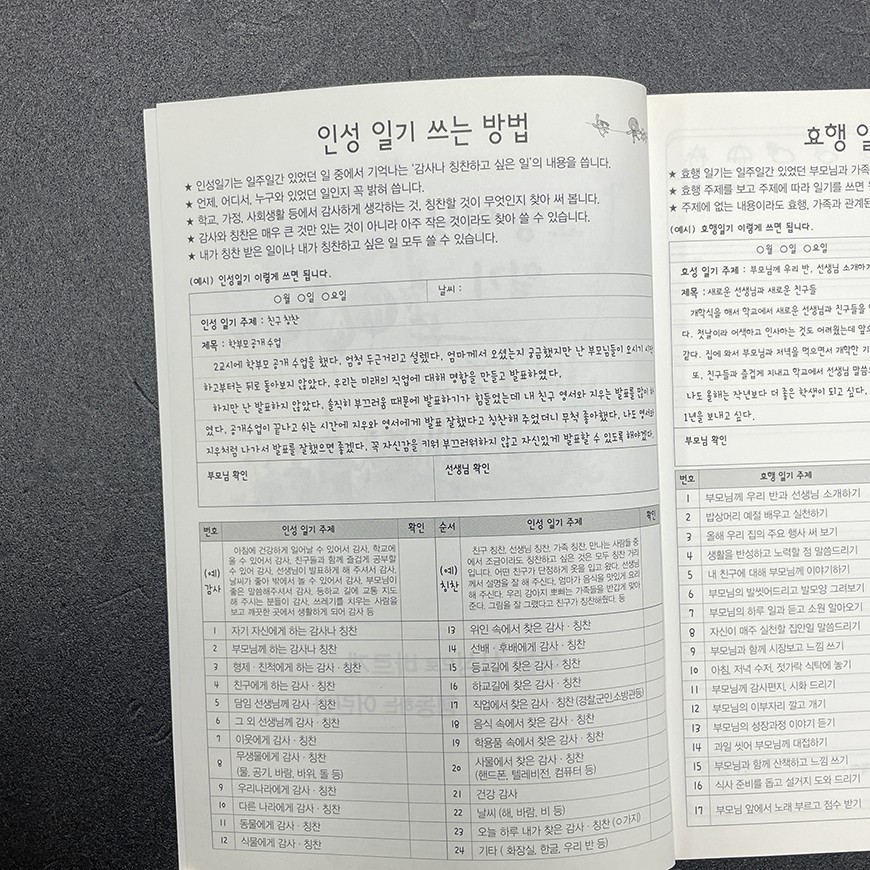 인성 일기 쓰는 방법
★ 인성일기는 일주일간 있었던 일 중에서 기억나는 '감사나 칭찬하고 싶은 일'의 내용을 씁니다.
★ 언제, 어디서, 누구와 있었던 일인지 꼭 밝혀 씁니다.
★ 학교, 가정, 사회생활 등에서 감사하게 생각하는 것, 칭찬할 것이 무엇인지 찾아 써 봅니다.
★ 감사와 칭찬은 매우 큰 것만 있는 것이 아니라 아주 작은 것이라도 찾아 쓸 수 있습니다.
★ 내가 칭찬 받은 일이나 내가 칭찬하고 싶은 일 모두 쓸 수 있습니다.
(예시) 인성일기 이렇게 쓰면 됩니다.
○월 ○일 ○요일 날씨 :
인성 일기 주제 : 친구 칭찬
제목 : 학부모 공개 수업
2교시에 학부모 공개 수업을 했다. 엄청 두근거리고 설렜다. 엄마께서 오셨는지 궁금했지만 난 부모님들이 오시기 시작
하고부터는 뒤로 돌아보지 않았다. 우리는 미래의 직업에 대해 명함을 만들고 발표하였다.
하지만 난 발표하지 않았다. 솔직히 부끄러움 때문에 발표하기가 힘들었는데 내 친구 영서와 지우는 발표를 많이 하
였다. 공개수업이 끝나고 쉬는 시간에 지우와 영서에게 발표 잘했다고 칭찬해 주었더니 무척 좋아했다. 나도 영서와
지우처럼 나가서 발표를 잘했으면 좋겠다. 꼭 자신감을 키워 부끄러워하지 않고 자신있게 발표할 수 있도록 해야겠다.
부모님 확인 선생님 확인
번호 인성 일기 주제 확인 순서 인성 일기 주제 확인
(예) 감사
아침에 건강하게 일어날 수 있어서 감사, 학교에
올 수 있어서 감사, 친구들과 함께 즐겁게 공부할
수 있어 감사, 선생님이 발표하게 해 주셔서 감사,
날씨가 좋아 밖에서 놀 수 있어서 감사, 부모님이
좋은 말씀해주셔서 감사, 등하교 길에 교통 지도
해 주시는 분들이 감사, 쓰레기를 치우는 사람을
보고 깨끗한 곳에서 생활하게 되어 감사 등
(예) 칭찬
친구 칭찬, 선생님 칭찬, 가족 칭찬, 만나는 사람들 중
에서 조금이라도 칭찬하고 싶은 것은 모두 칭찬 거리
입니다. 어떤 친구가 단정하게 옷을 입고 왔다. 선생님
께서 설명을 잘 해 주신다. 엄마가 음식을 맛있게 요리
해 주신다. 우리 강아지 뽀삐는 가족들을 반갑게 맞아
준다. 그림을 잘 그렸다고 친구가 칭찬해줬다. 등
1 자기 자신에게 하는 감사나 칭찬
2 부모님께 하는 감사나 칭찬
3 형제 · 친척에게 하는 감사 · 칭찬
4 친구에게 하는 감사 · 칭찬
5 담임 선생님께 감사 · 칭찬
6 그 외 선생님께 감사 · 칭찬
7 이웃에게 감사 · 칭찬
8 무생물에게 감사 · 칭찬
(물, 공기, 바람, 바위, 돌 등)
9 우리나라에게 감사 · 칭찬
10 다른 나라에게 감사 · 칭찬
11 동물에게 감사 · 칭찬
12 식물에게 감사 · 칭찬
13 위인 속에서 찾은 감사 · 칭찬
14 선배 · 후배에게 감사 · 칭찬
15 등교길에 찾은 감사 · 칭찬
16 하교길에 찾은 감사 · 칭찬
17 직업에서 찾은 감사 · 칭찬 (경찰,군인,소방관등)
18 음식 속에서 찾은 감사 · 칭찬
19 학용품 속에서 찾은 감사 · 칭찬
20 사물에서 찾은 감사 · 칭찬
(핸드폰, 텔레비전, 컴퓨터 등)
21 건강 감사
22 날씨 (해, 바람, 비 등)
23 오늘 하루 내가 찾은 감사 · 칭찬 (○가지)
24 기타 ( 화장실, 한글, 우리 반 등)
효행 일
★ 효행 일기는 일주일간 있었던 부모님과 가족
★ 효행 주제를 보고 주제에 따라 일기를 쓰면
★ 주제에 없는 내용이라도 효행, 가족과 관계된
(예시) 효행일기 이렇게 쓰면 됩니다.
○월 ○일 ○요일
효성 일기 주제 : 부모님께 우리 반, 선생님 소개하기
제목 : 새로운 선생님과 새로운 친구들
개학식을 해서 학교에서 새로운 선생님과 친구들을
다. 첫날이라 어색하고 인사하는 것도 어려웠는데 앞으
같다. 집에 와서 부모님과 저녁을 먹으면서 개학한
또, 친구들과 즐겁게 지내고 학교에서 선생님 말씀
나도 올해는 작년보다 더 좋은 학생이 되고 싶다.
1년을 보내고 싶다.
부모님 확인
번호 효행 일기 주제
1 부모님께 우리 반과 선생님 소개하기
2 밥상머리 예절 배우고 실천하기
3 올해 우리 집의 주요 행사 써 보기
4 생활을 반성하고 노력할 점 말씀드리기
5 내 친구에 대해 부모님께 이야기하기
6 부모님의 발씻어드리고 발모양 그려보기
7 부모님의 하루 일과 듣고 소원 알아오기
8 자신이 매주 실천할 집안일 말씀드리기
9 부모님과 함께 시장보고 느낌 쓰기
10 아침, 저녁 수저, 젓가락 식탁에 놓기
11 부모님께 감사편지, 시화 드리기
12 부모님의 이부자리 깔고 개기
13 부모님의 성장과정 이야기 듣기
14 과일 씻어 부모님께 대접하기
15 부모님과 함께 산책하고 느낌 쓰기
16 식사 준비를 돕고 설거지 도와 드리기
17 부모님 앞에서 노래 부르고 점수 받기